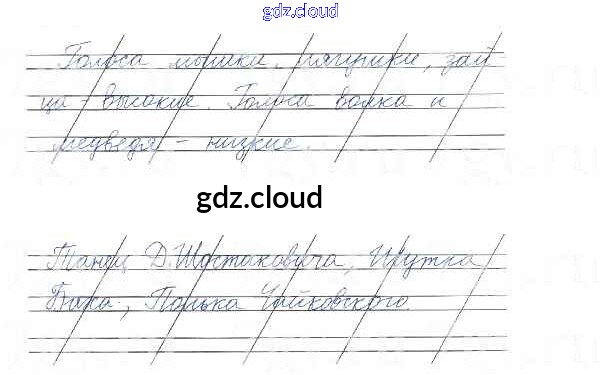 gdz.cloud
Голоса мышки, лягушки, зай-
ца - высокие. Голоса волка и
медведя - низкие.
gdz.cloud
Танец Д. Шостаковича, Шутка
Баха, Полька Чайковского